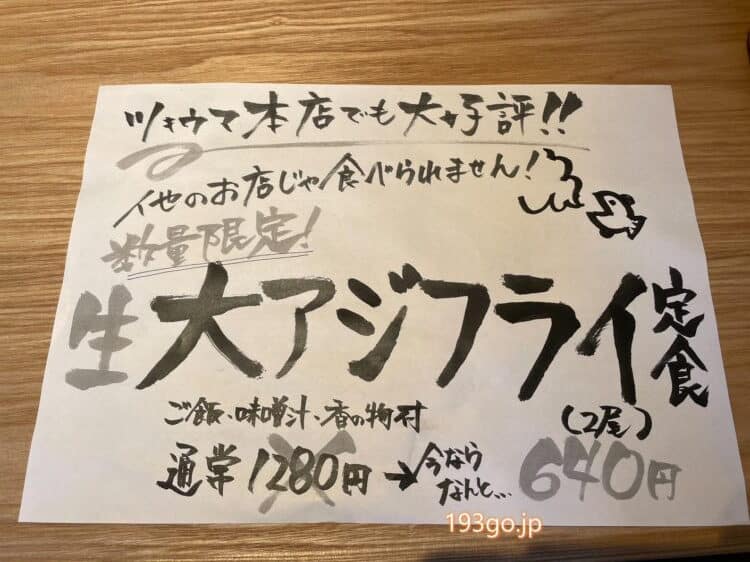 ツキウマ本店でも大好評!!
他のお店じゃ食べられません!
数量限定!
生大アジフライ定食
(2尾)
ご飯・味噌汁・香の物付
通常1280円→今なら
なんと...640円
193go.jp